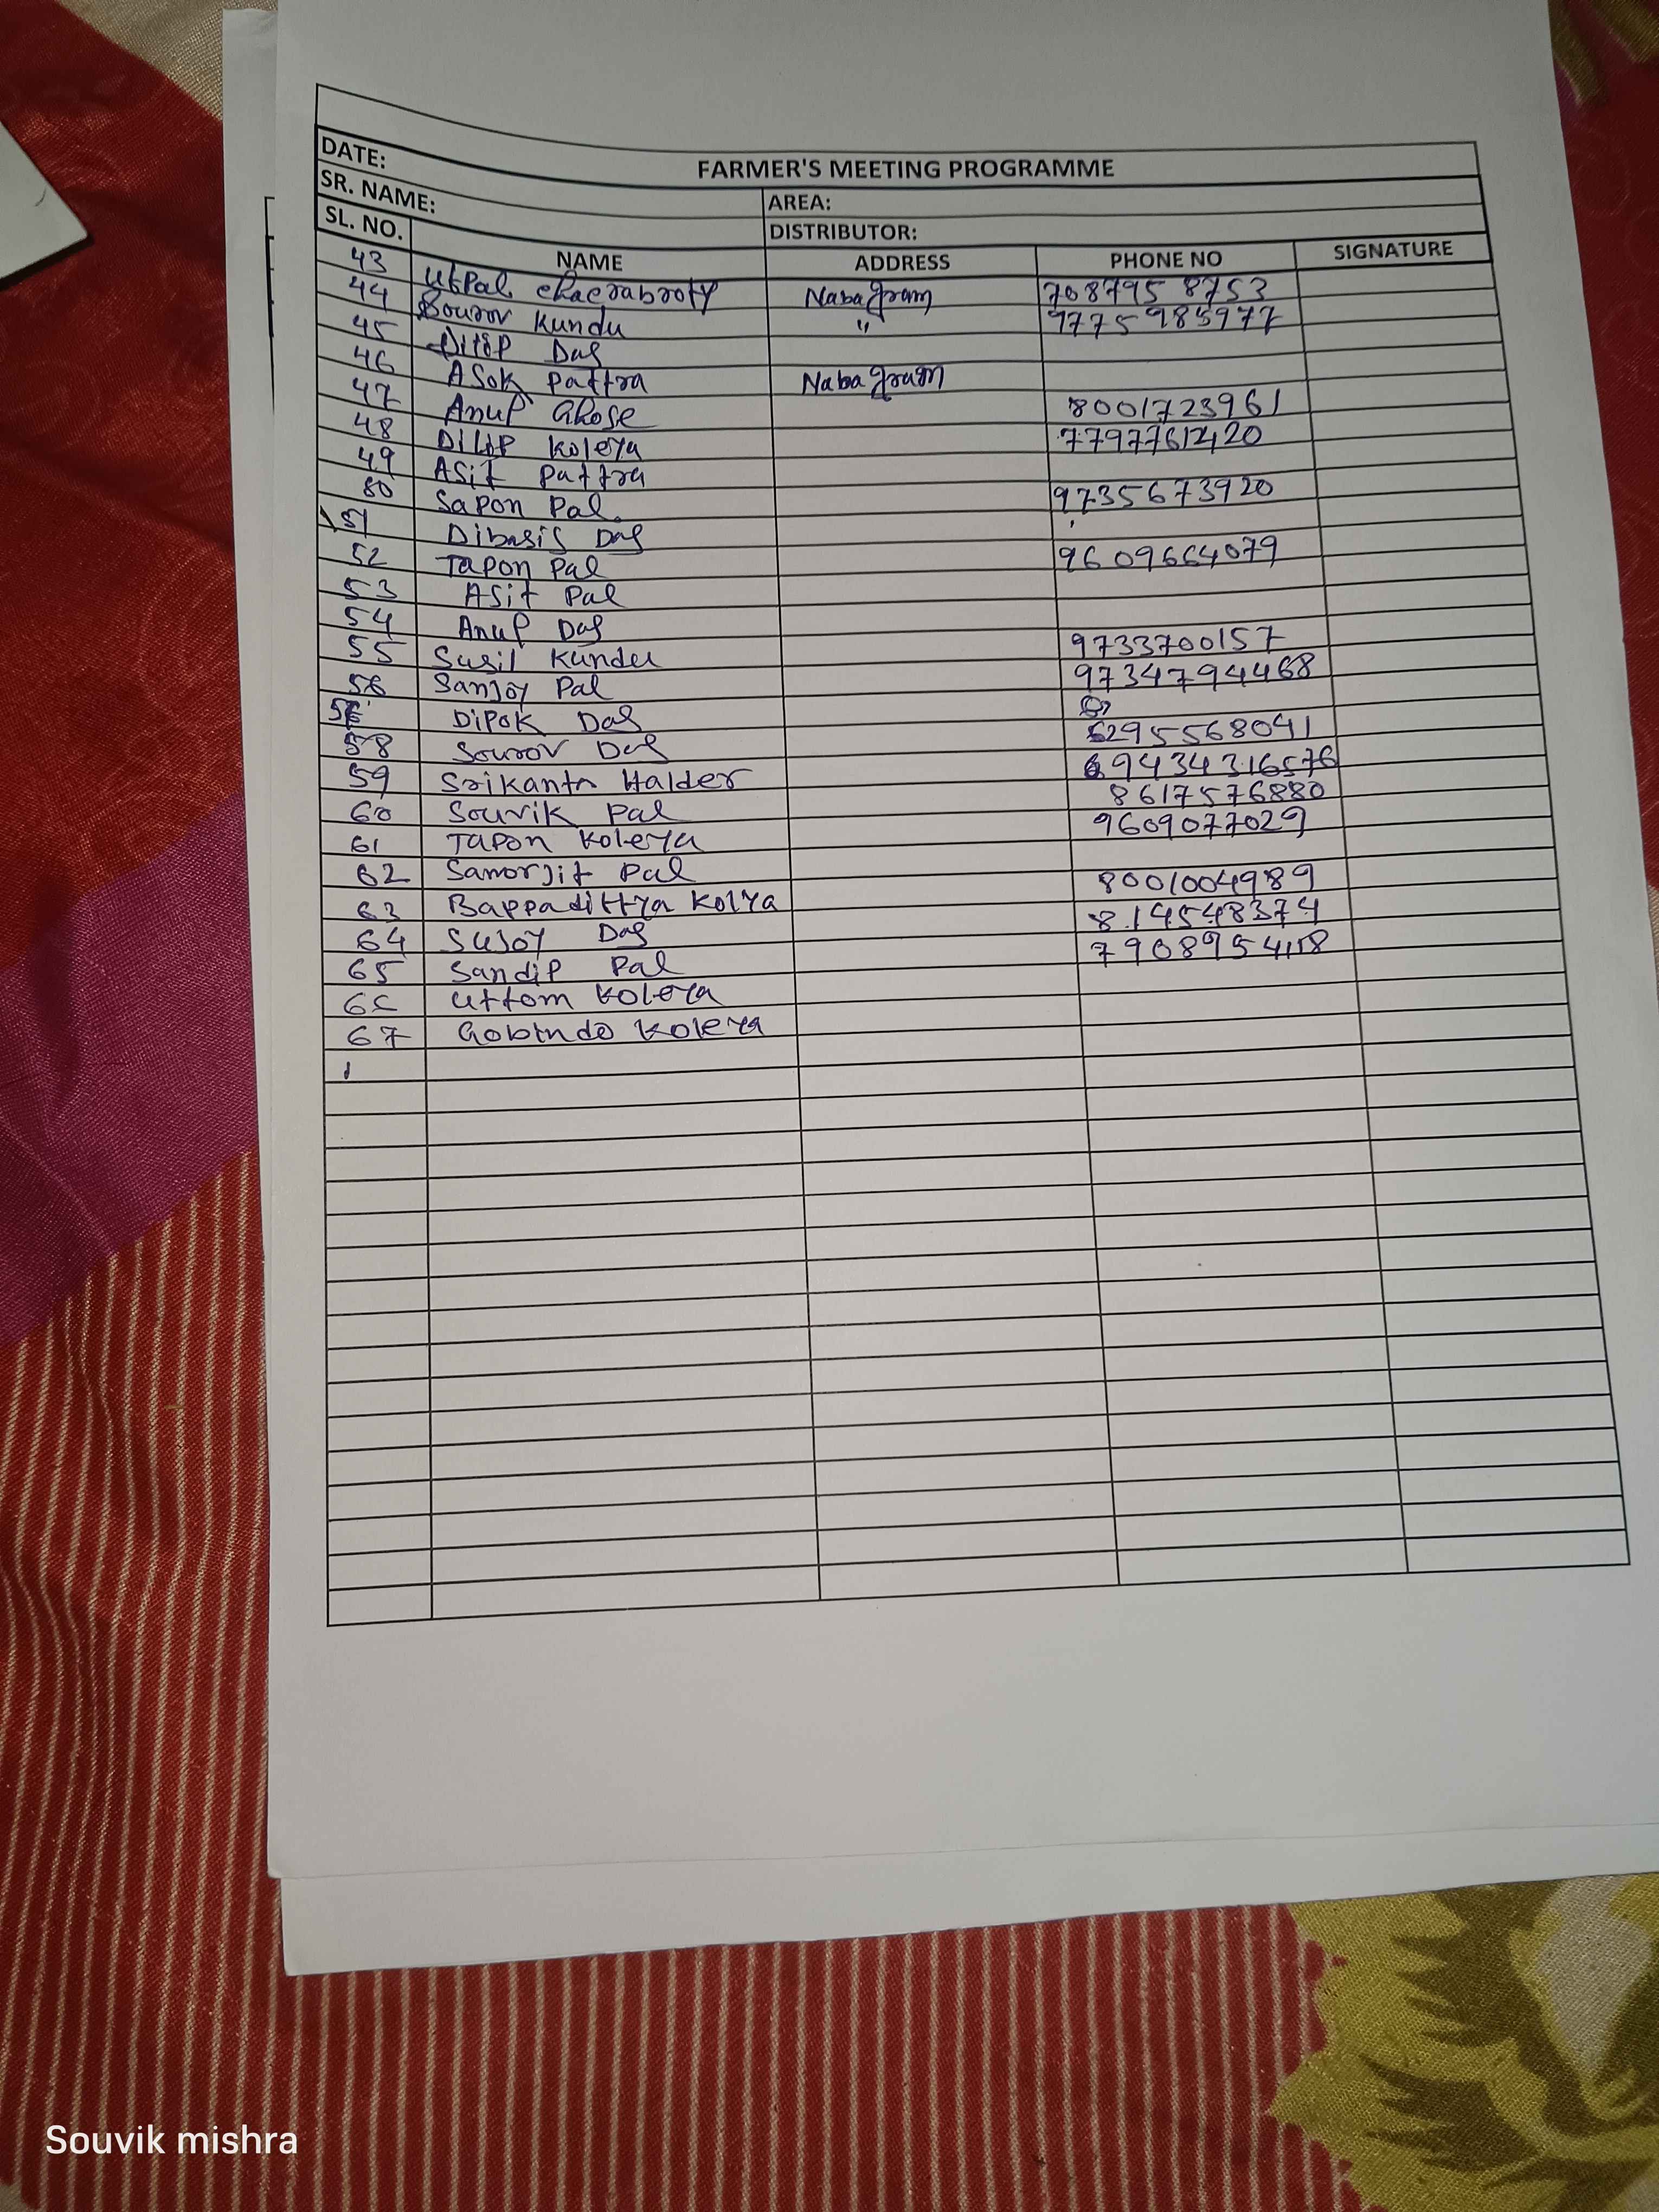 FARMER'S MEETING PROGRAMME
DATE:
SR. NAME: AREA:
DISTRIBUTOR:
SL. NO. NAME ADDRESS PHONE NO SIGNATURE
43 Utpal Chacrabroty Nabagram 7087958753
44 Sourov Kundu " 9775985977
45 Dilip Das
46 Asok Pattra Nabagram
47 Anup Ghose 8001723961
48 Dilip Koleya
49 Asit Pattra
50 Sapon Pal 9735673920
51 Dibasis Das
52 Tapon Pal 9609664079
53 Asit Pal
54 Anup Das
55 Susil Kundu 9733700157
56 Sanjoy Pal 9734794468
Dipok Das
58 Sourov Das 6295568041
59 Srikanta Halder 9434316576
60 Souvik Pal 8617576880
61 Tapon Koleya 9609077029
62 Samorjit Pal
63 Bappadittya Kolya 8001004989
64 Sujoy Das 814548374
65 Sandip Pal 7908954118
66 Uttom Koleya
67 Gobindo Koleya
Souvik mishra